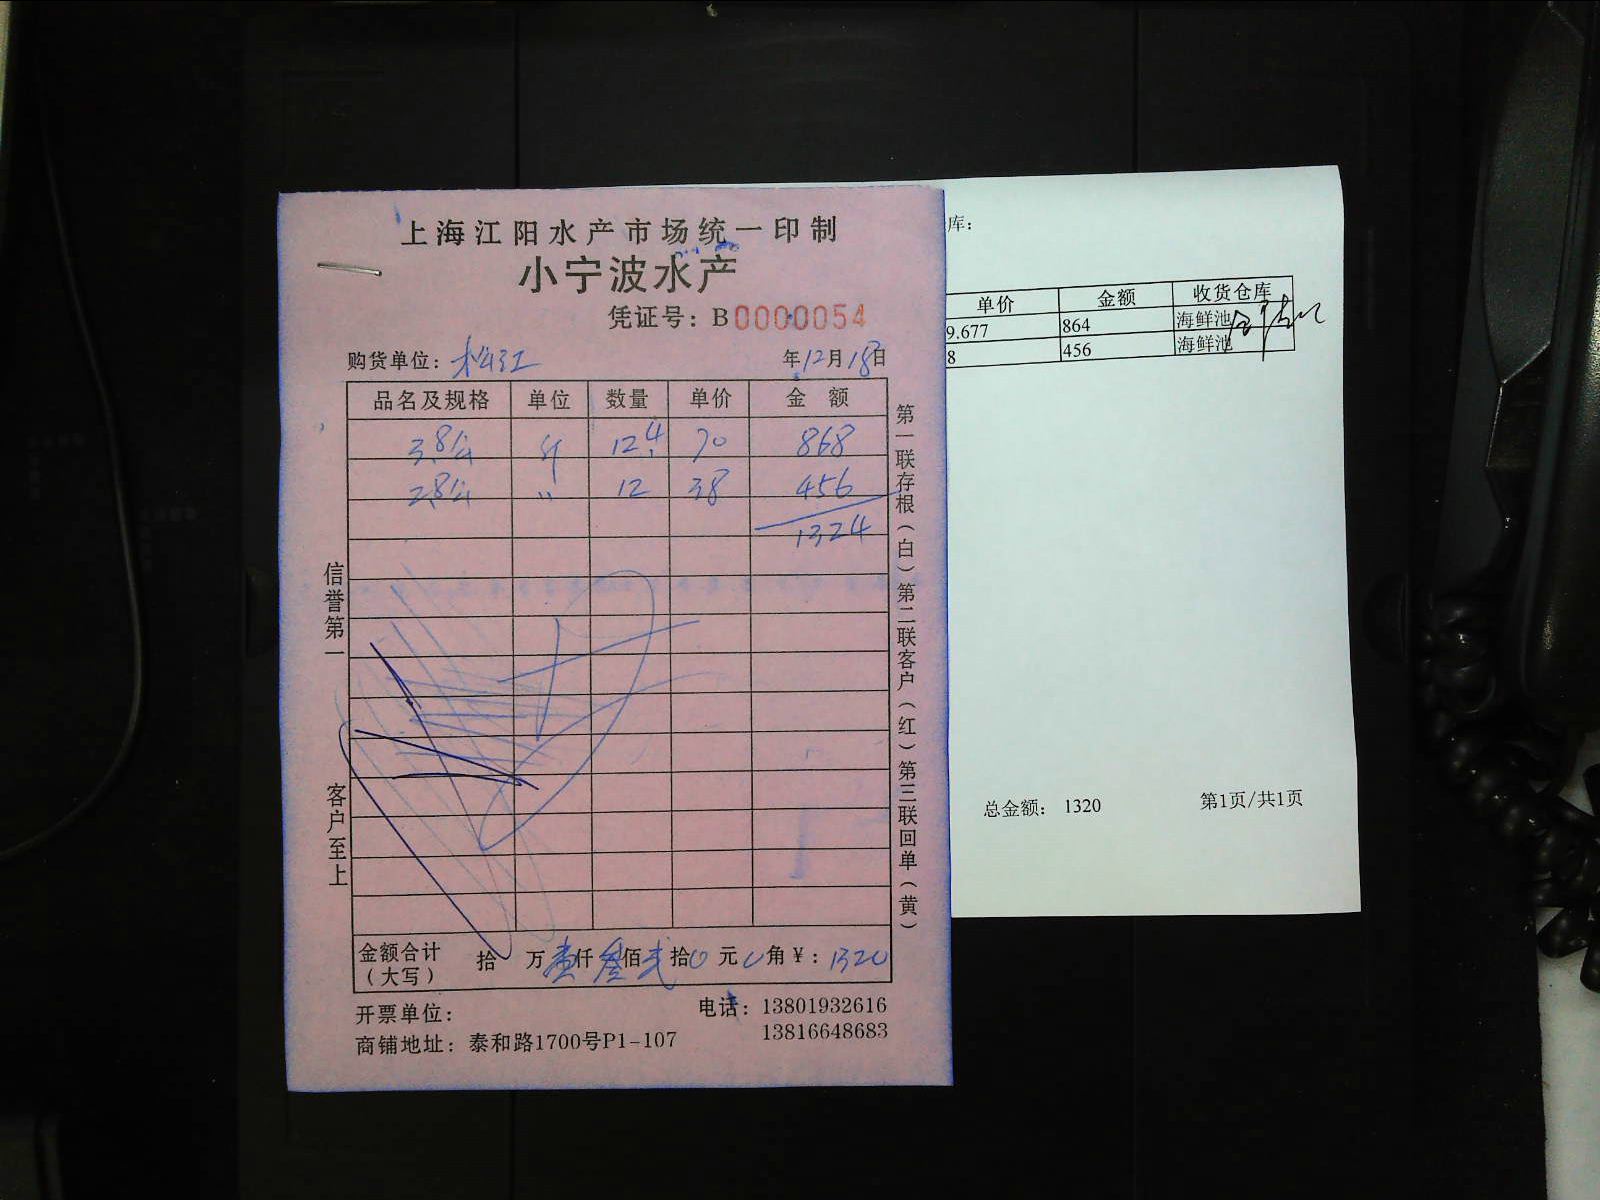 上海江阳水产市场统一印制
小宁波水产
凭证号：B0000054
购货单位：松江 年12月18日
品名及规格 单位 数量 单价 金额
3.8公 斤 12.4 70 868
2.8公 〃 12 38 456
1324
金额合计（大写） 拾 万壹仟叁佰贰拾0元0角¥：1320
开票单位：
电话：13801932616
13816648683
商铺地址：泰和路1700号P1-107
信誉第一
客户至上
第一联存根（白）第二联客户（红）第三联回单（黄）
库：
单价 金额 收货仓库
9.677 864 海鲜池
8 456 海鲜池
总金额： 1320 第1页/共1页